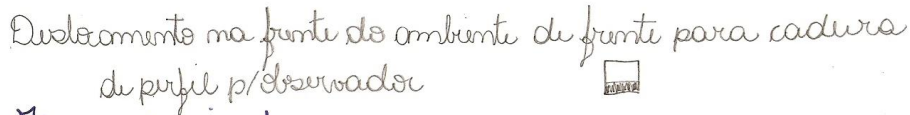 Deslocamento na frente do ambiente de frente para cadeira
de perfil p/observador